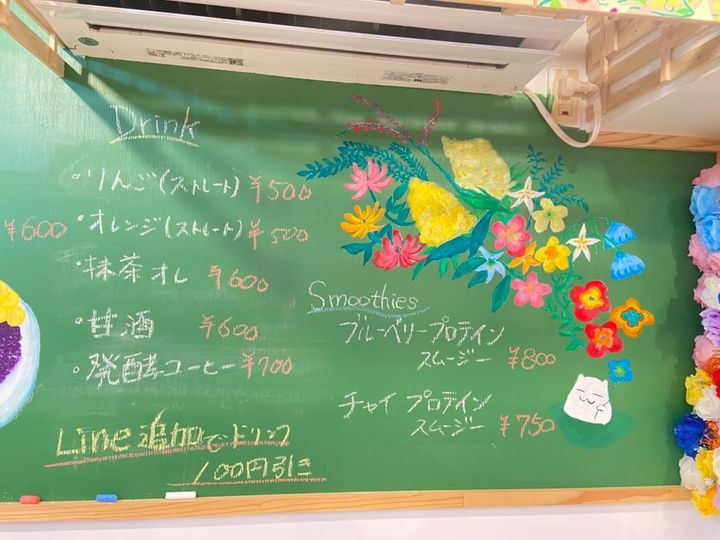 Drink
・りんご(ストレート) ¥500
¥600
・オレンジ(ストレート) ¥500
・抹茶オレ ¥600
・甘酒 ¥600
・発酵コーヒー ¥700
Line追加でドリンク
100円引き
Smoothies
ブルーベリープロテイン
スムージー ¥800
チャイ プロテイン
スムージー ¥750